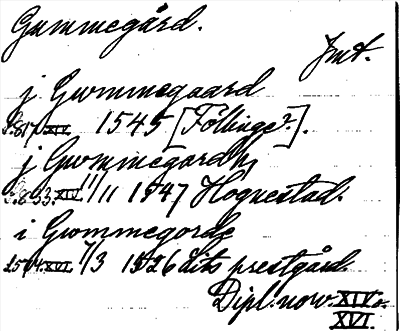 Gammegård.
Jmt.
j Gwmmegaard
S. 817. XIV. 1545 [Föllinge?].
j Gwmmegardh,
S. 833. XIV. 11/11 1547 Hognestad.
i Gwmmegorde
XVI. 7/3 1526 dits prestgård.
Dipl. norv. XIV o.
XVI.